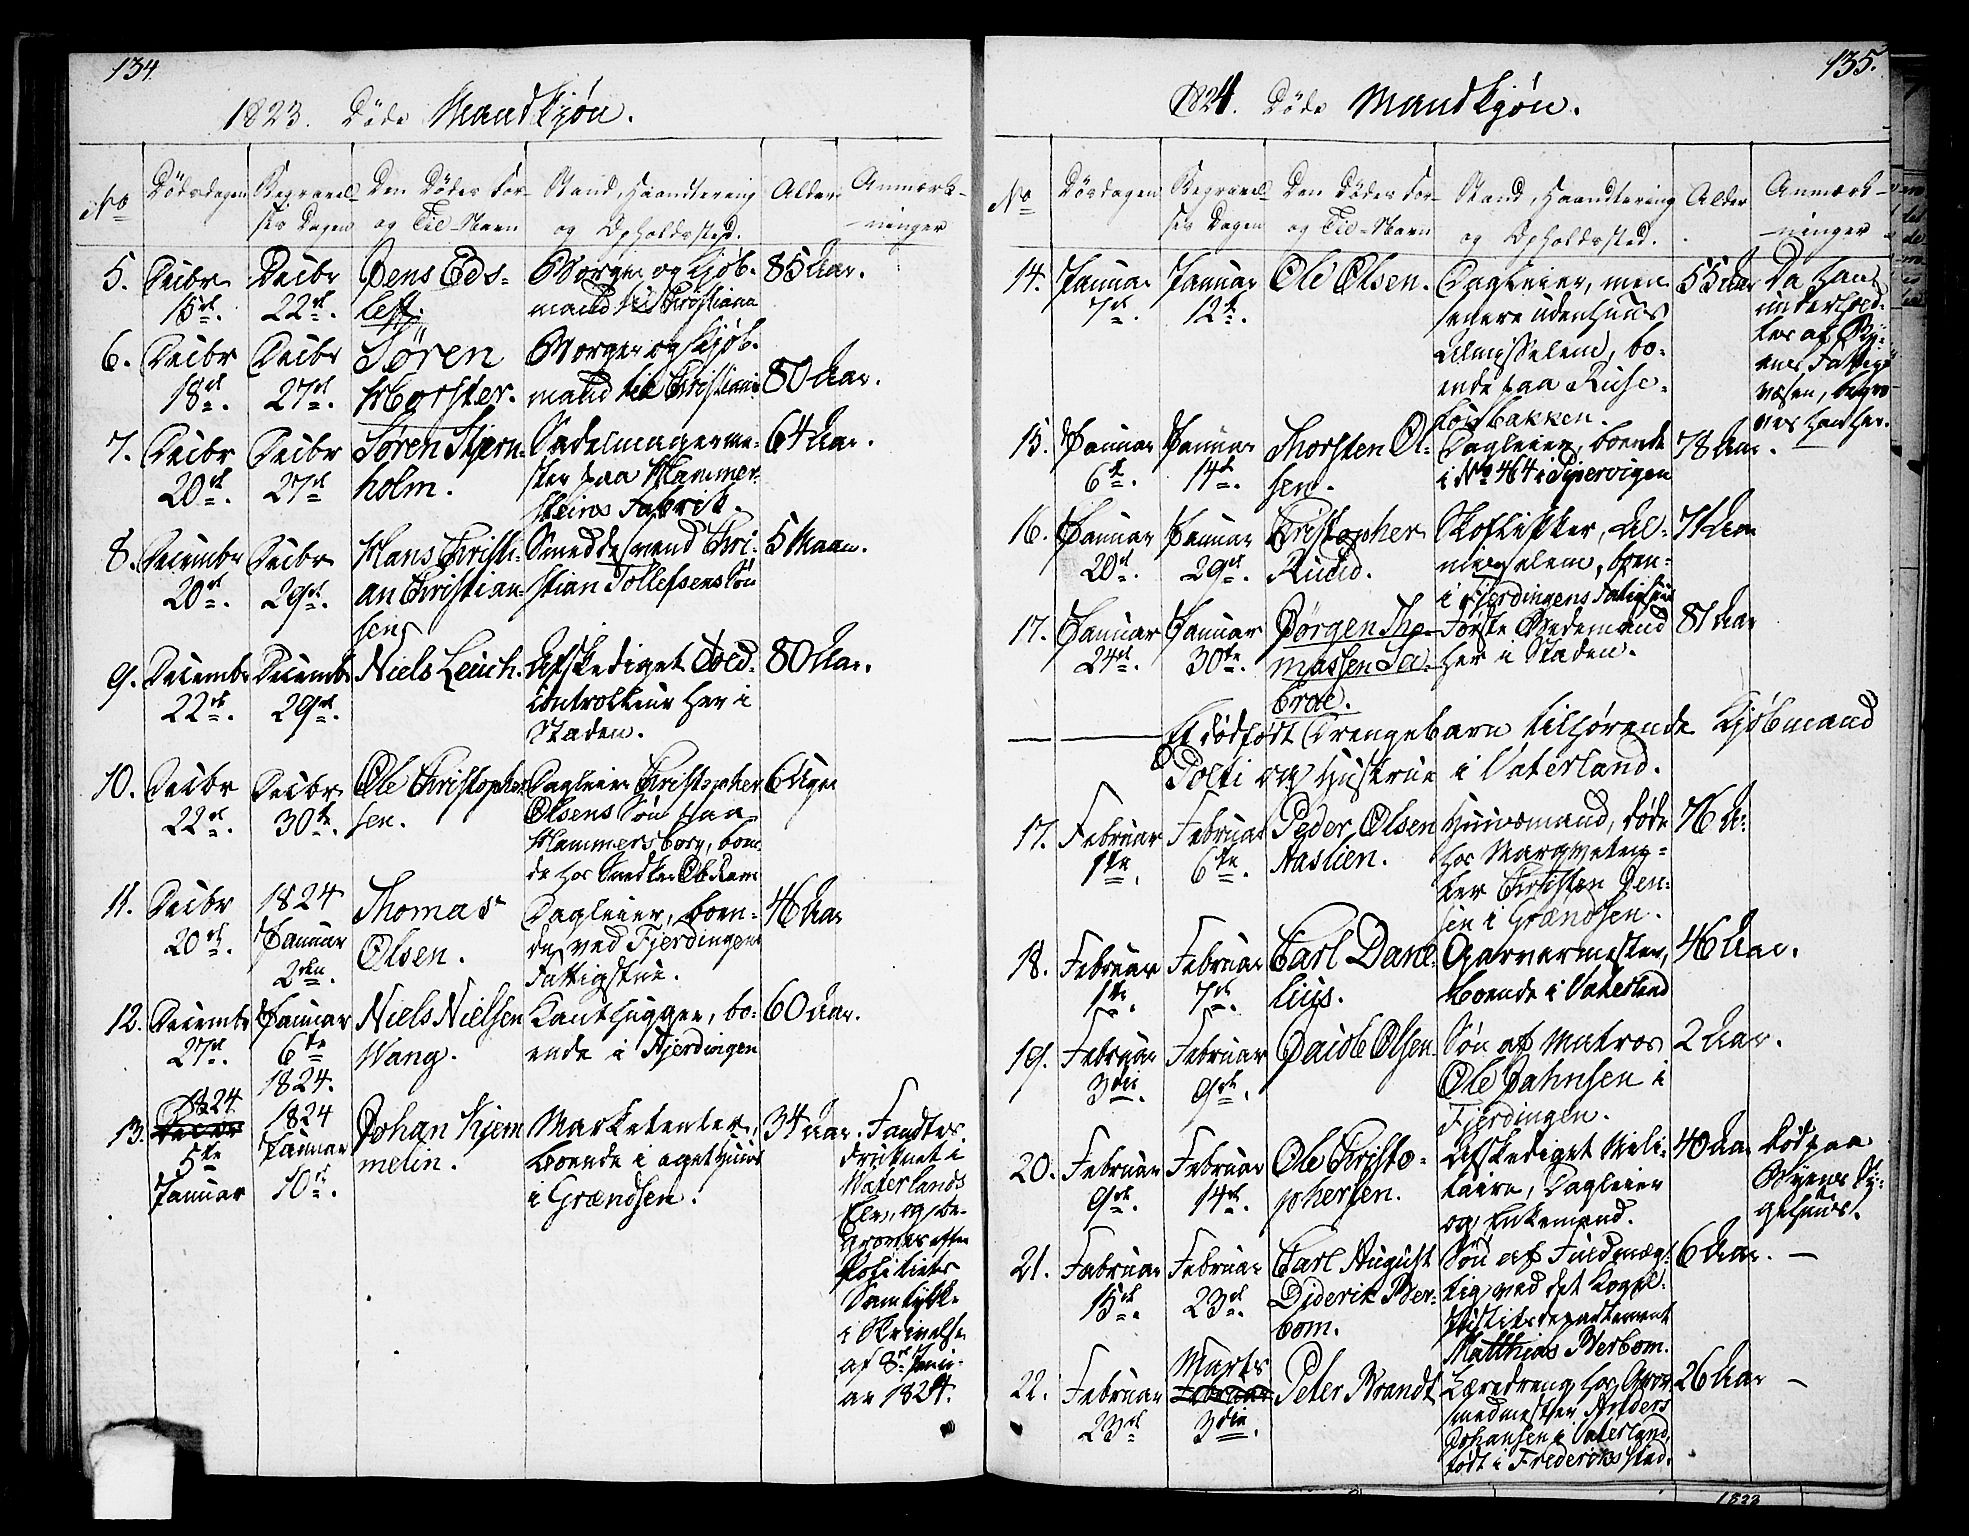 134.
1823. Døde Mandkjøn.
No
Dødsdagen
Begravel-
ses Dagen
Den Dødes For-
og Til-Navn
Stand, Haandtering
og Opholdssted.
Alder
Anmærk-
ninger
5.
Decbr
15de.
Decbr
22de.
Jens Eds-
leff.
Borger og Kjøb-
mand til Christiania
85 Aar.
6.
Decbr
18de.
Decbr
27de.
Søren
Horster.
Borger og Kjøb-
mand til Christiania
80 Aar.
7.
Decbr
20de.
Decbr
27de
Søren Stjern-
holm.
Sadelmagerme-
ster paa Hammer-
steins Fabrik.
64 Aar.
8.
Decembr
20de.
Decbr
29de.
Hans Christi-
an Christian-
sen
Smeddesvend Chri-
stian Tollefsens Søn
5 Maan.
9.
Decembr
22de.
Decembr
29de.
Niels Leuch.
Afskediget Told-
controlleur her i
Staden.
80 Aar.
10.
Decbr
22de.
Decbr
30te.
Ole Christopher-
sen.
Dagleier Christopher
Olsens Søn paa
Hammersborg, boen-
de hos Snedker
6 Uger
11.
Decbr
20de.
1824
Januar
2den.
Thomas
Olsen.
Dagleier, boen-
de ved Fjerdingens
Fattigstue.
46 Aar
12.
Decembr
27de.
Januar
6te
1824.
Niels Nielsen
Wang.
Kanthugger, bo-
ende i Fjerdingen
60 Aar.
13.
1824
Decbr
5te
Januar
1824
Januar
10de.
Johan Kjem
melin.
Marketenter,
boende i eget Huus
i Grændsen.
34 Aar.
Fandtes
druknet i
Waterlands
Elv, og be-
groves efter
Politiets
Samtykke
i Skrivelse
af 8de Janu-
ar 1824.
135.
1824. Døde Mandkjøn.
No
Dødsdagen
Begravel-
ses Dagen
Den Dødes For-
og Til-Navn
Stand, Haandtering
og Opholdssted.
Alder
Anmærk-
ninger
14.
Januar
7de.
Januar
12te.
Ole Olsen.
Dagleier, men
senere udenhuus
Almisselem, bo-
ende paa Ruse-
løsbakken.
55 Aar
Da han
underhold-
tes af By-
ens Fattig-
væsen, begra-
ves han her.
15.
Januar
6te.
Januar
14de.
Thorsten Ol-
sen.
Dagleier, boende
i No 464 i Pipervigen
78 Aar.
16.
Januar
20de.
Januar
29de.
Christopher
Ruud.
Skoflikker, Al-
misselem, boen-
i Fjerdingens Fatighus
71 Aar
17.
Januar
24de.
Januar
30te.
Jørgen Tho-
massen
Første Bedemand
her i Staden.
81 Aar
Et dødfødt Drengebarn tilhørende Kjøbmand
Polti og Hustrue i Vaterland.
17.
Februar
1te.
Februar
6te.
Peder Olsen
Haslien.
Huusmand, døde
hos Marqveten-
ter Christen Jen-
sen i Grændsen.
76 A
18.
Februar
1te.
Februar
7de.
Carl Dane-
lius.
Garvermester,
boende i Vaterland
46 Aar.
19.
Februar
3die.
Februar
9de.
Jacob Olsen.
Søn af Matros
Ole Jahnsen i
Fjerdingen.
2 Aar.
20.
Februar
9de.
Februar
14de.
Ole Christo-
phersen.
Afskediget Mili-
taire, Dagleier
og Enkemand.
40 Aar
død paa
Byens Sy-
gehuus.
21.
Februar
15de.
Februar
23de.
Carl August
Diderik Ber-
bom.
Søn af Fuldmæg-
tig ved det Kongel.
Justitsdepartement
Matthias Berbom.
6 Aar. —
22.
Februar
23de
Marts
Februar
3die.
Peter Brandt
Læredreng hos Grov-
smedmester Anders
Johansen i Vaterland,
født i Frederiksstad.
26 Aar —